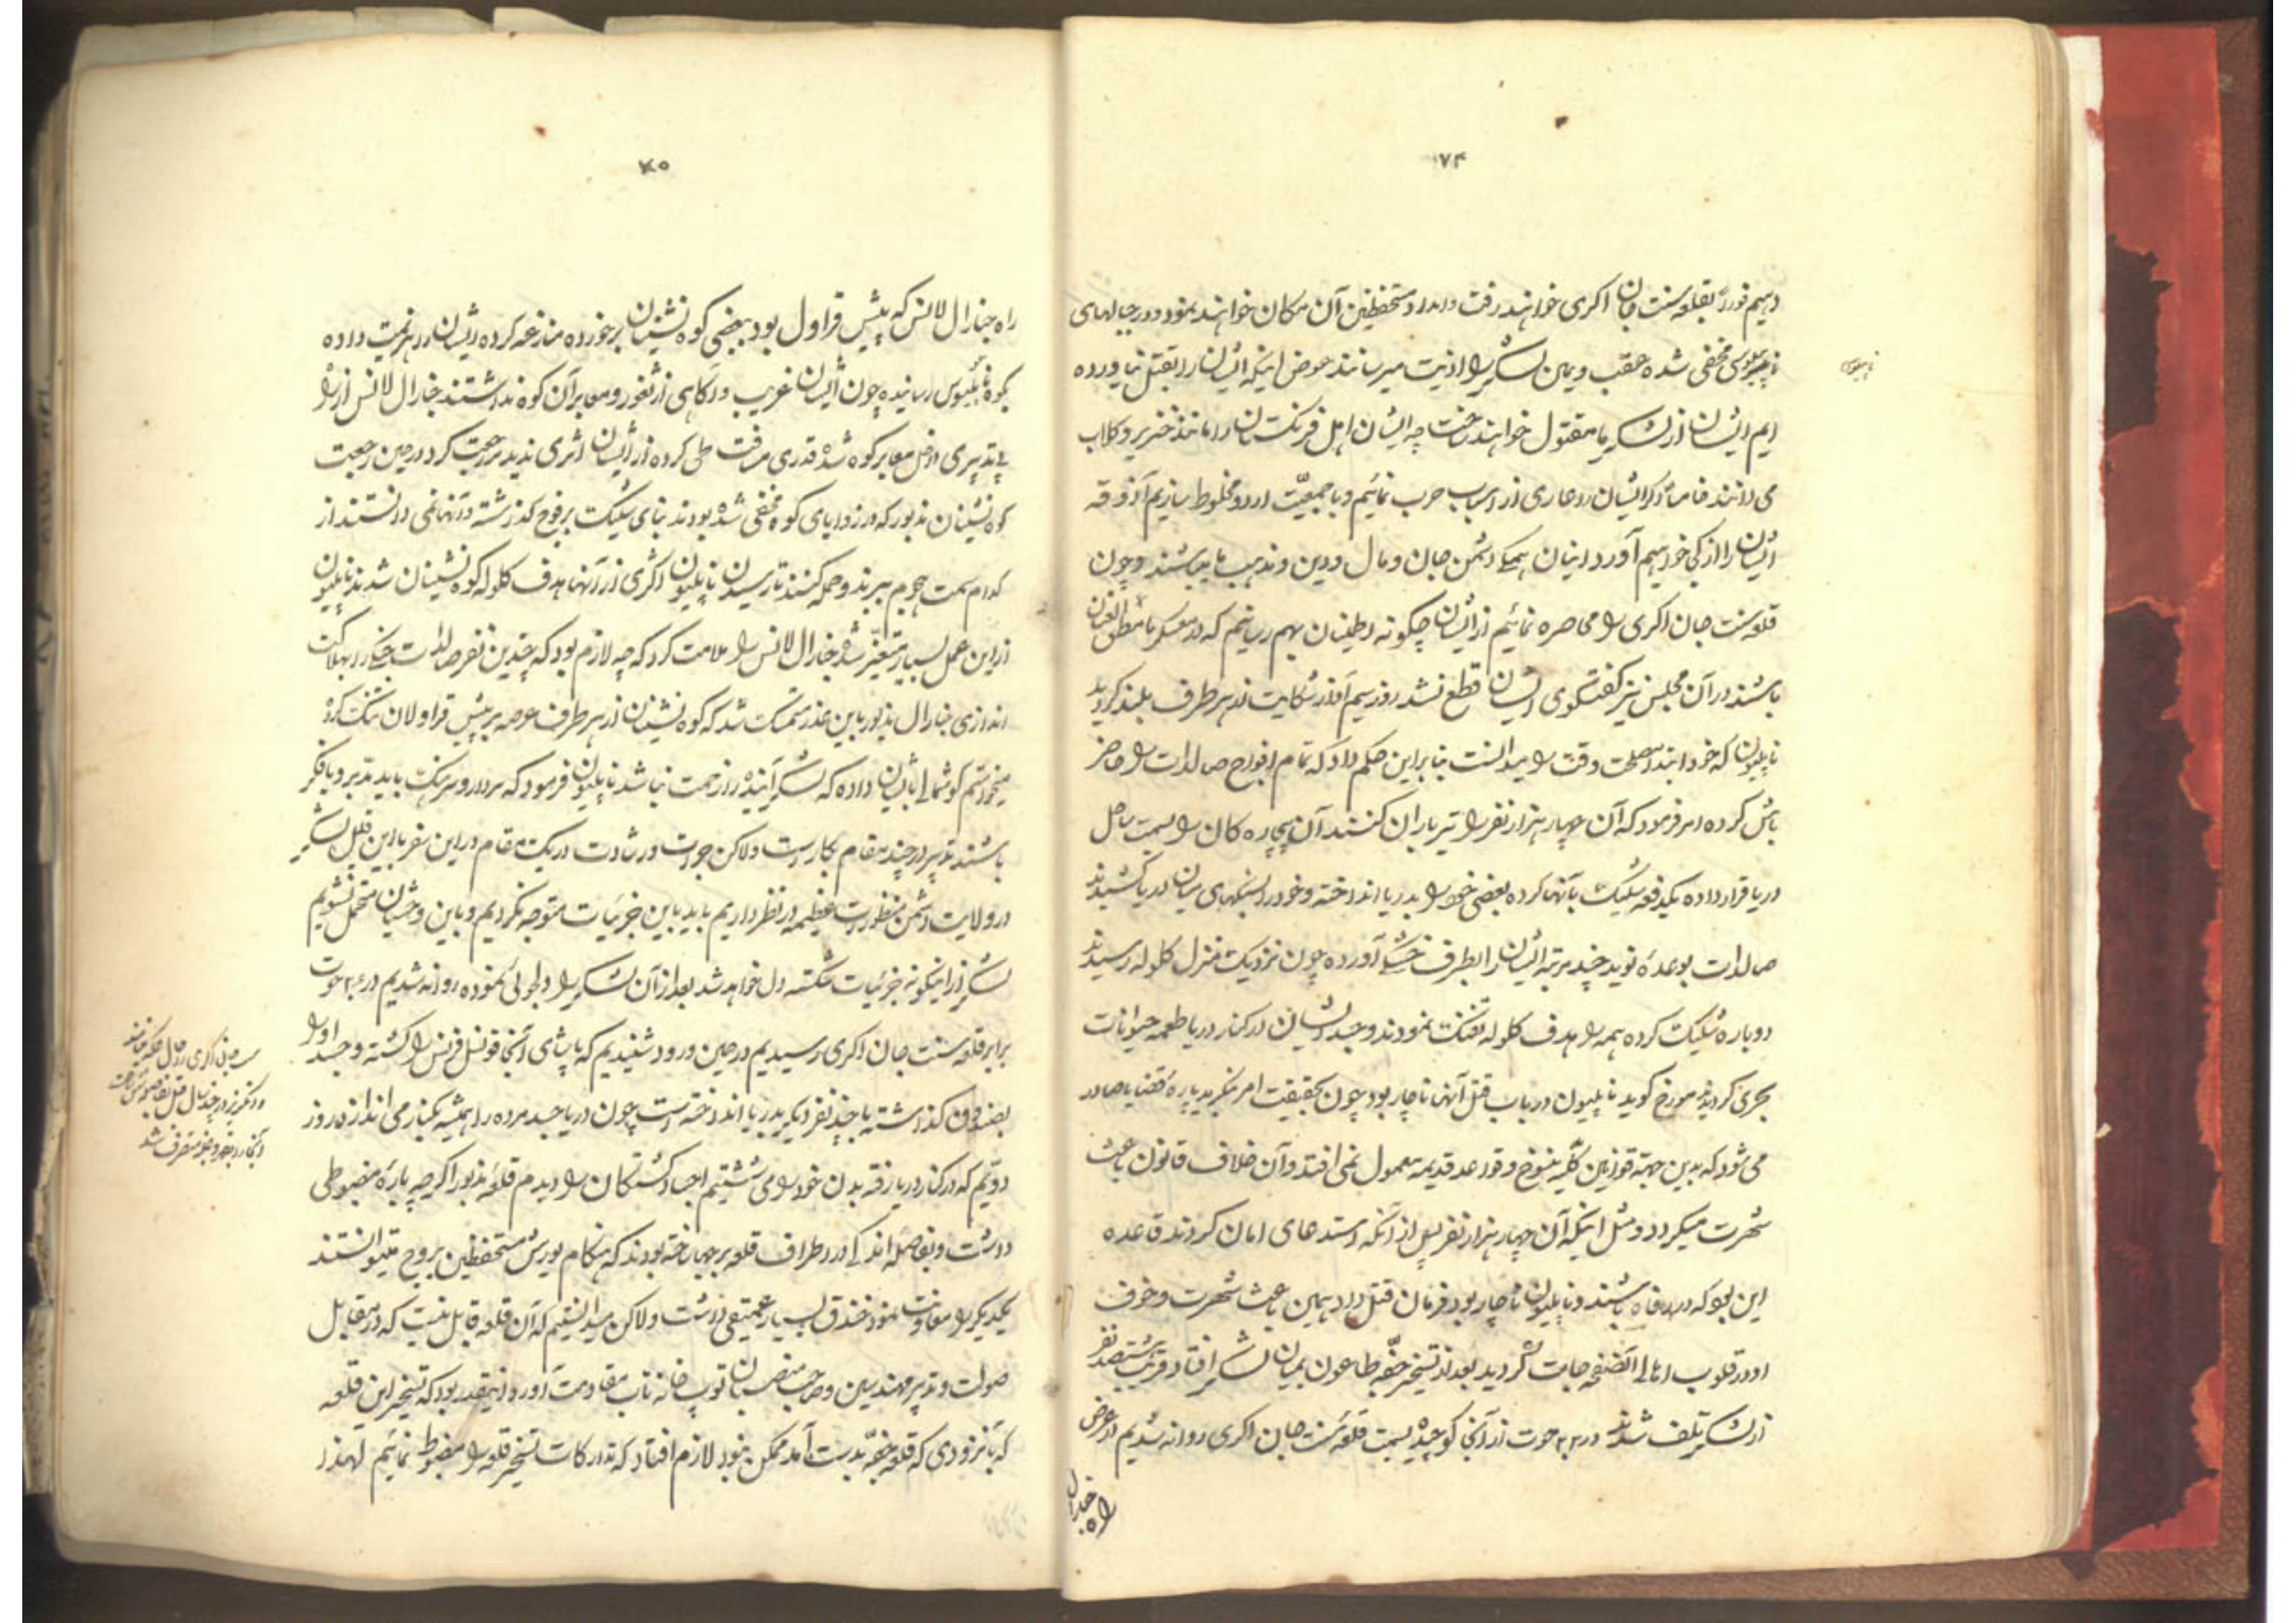 ۷۴
دهیم فوراً بقلعه سنت جان اکری خواهند رفت و امداد مستحفظین آن مکان خواهند نمود و در جبالهای
مخفی شده عقب و یمین لشکر را اذیت میرسانند عوض اینکه ایشان را بقتل نیاورده
ایم ایشان از لشکر ما مقتول خواهند ساخت چه ایشان اهل فرنگستان را مانند خنزیر و کلاب
می دانند خاصاً اگر ایشان را عاری از اسباب حرب نمائیم و با جمعیّت اردو مخلوط سازیم آذوقه
ایشان را از کجا خواهیم آورد اینان همگی دشمن جان و مال و دین و مذهب ما میباشند و چون
قلعه سنت جان اکری را محاصره نمائیم از ایشان چگونه اطمینان بهم رسانیم که در معسکر ما مطلق العنان
باشند در آن مجلس نیز گفتگوی ایشان قطع نشد روز سیم آواز شکایت از هر طرف بلند گردید
ناپلیون که خود ابتدا مصلحت وقت را میدانست بنا بر این حکم داد که تمام افواج صالدات را حاضر
باش کرده امر فرمود که آن چهار هزار نفر را تیر باران کنند آن بیچاره کان را بسمت ساحل
دریا قرار داده یکدفعه شلیک بآنها کرده بعضی خود را بدریا انداخته و خود را بسنگهای میان دریا کشیدند
صالدات بوعدهٔ نوید چند مرتبه ایشان را بطرف خشکی آورده چون نزدیک منزل کلوله رسیدند
دوباره شلیک کرده همه را هدف کلوله تفنگ نمودند و جسد ایشان در کنار دریا طعمه حیوانات
بحری گردید مورخ گوید ناپلیون در باب قتل آنها ناچار بود چون بحقیقت امر بنگرید پارهٔ قضایا صادر
می شود که بدین جهة قوانین کلّیه منسوخ و قواعد قدیمه معمول نمی افتد و آن خلاف قانون باعث
شهرت میکردد و مثل اینکه آن چهار هزار نفر پس از آنکه استدعای امان کردند قاعده
این بود که در رفاه باشند و ناپلیون ناچار بود فرمان قتل داد همین باعث شهرت و خوف
او در قلوب اهالی آنصفحه جات گردید بعد از تسخیر جفّه طاعون بمیان لشکر افتاد و قریب ششصد نفر
از لشکر تلف شدند در ۲۲ حوت از آنجا کوچیده بسمت قلعه سنت جان اکری روانه شدیم در عرض
راه جنرال
۷۵
راه جنرال لانس که پیش قراول بود ببعضی کوه نشینان برخورده منازعه کرده ایشان را هزیمت داده
بکوه رسانیده چون ایشان غریب و آگاهی از ثغور و معابر آن کوه نداشتند جنرال لانس از راه
بی تدبیری داخل معابر کوه شده قدری مسافت طی کرده از ایشان اثری ندید مراجعت کرد در حین رجعت
کوه نشینان مذبور که در زوایای کوه مخفی شده بودند بنای شلیک بر فوج گذاشته و آنها نمی دانستند از
کدام سمت هجوم ببرند و حمله کنند تا رسیدن ناپلیون اکثری از آنها هدف کلوله کوه نشینان شدند ناپلیون
از این عمل بسیار متغیّر شده جنرال لانس را ملامت کرد که چه لازم بود که چندین نفر صالدات جنگی را بهلاکت
اندازی جنرال مذبور باین عذر متمسک شد که کوه نشینان از هر طرف عرصه بر پیش قراولان تنک کرده
میخواستم گوشمالی بایشان داده که لشکر آینده را زحمت نباشد ناپلیون فرمود که سردار و سرهنگ باید مدبّر و با فکر
باشند تدبیر در چند مقام بکار است ولاکن جرأت و رشادت در یک مقام در این سفر با این قلیل لشکر
در ولایت دشمن منظورات عظیمه در نظر داریم باید باین جزئیات متوجه نگردیم و باین وحشیان متحمل نشویم
لشکر از اینگونه جزئیات شکسته دل خواهد شد بعد از آن لشکر را دلجوئی نموده روانه شدیم در ۲۶ حوت
برابر قلعه سنت جان اکری رسیدیم در حین ورود شنیدیم که پاشای آنجا قونسل فرنس را کشته و جسد او را
بصندوق گذاشته با چند نفر دیگر بدریا انداخته است چون دریا جسد مرده را همیشه بکنار می اندازد روز
دوّیم که در کنار دریا رفته بدن خود را می شستیم اجساد کشتگان را دیدم قلعهٔ مذبور اگر چه بارهٔ مضبوطی
داشت و بفاصله اندکی در اطراف قلعه برجها ساخته بودند که هنگام یورش مستحفظین بروج میتوانستند
یکدیگر را معاونت نمود خندق بسیار عمیقی داشت ولاکن میدانستیم که آن قلعه قابل نیست که در مقابل
صولت و تدبیر مهندسین و صاحب منصبان توپ خانه تاب مقاومت آورد اینقدر بود که تسخیر این قلعه
که بآنزودی که قلعه جفّه بدست آمد ممکن نبود لازم افتاد که تدارکات تسخیر قلعه را مضبوط نمائیم لهذا